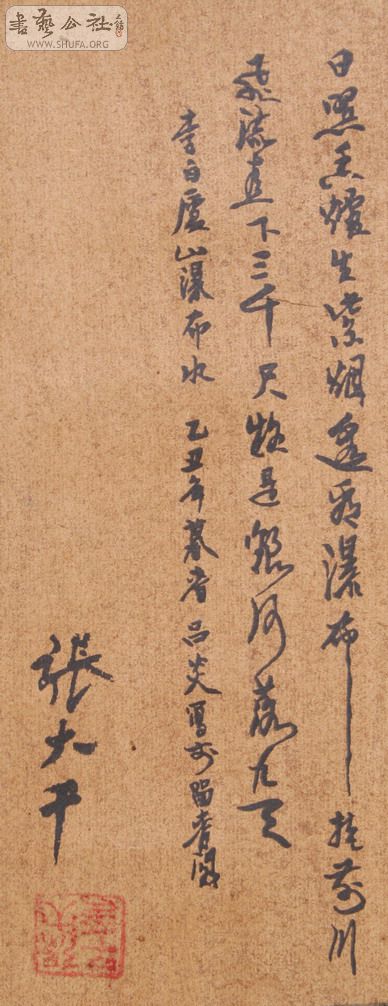 書藝公社
WWW.SHUFA.ORG
日照香爐生紫烟遥看瀑布挂前川
飛流直下三千尺疑是銀河落九天
李白廬山瀑布水 乙丑年暮春呂炎寫於
張大千